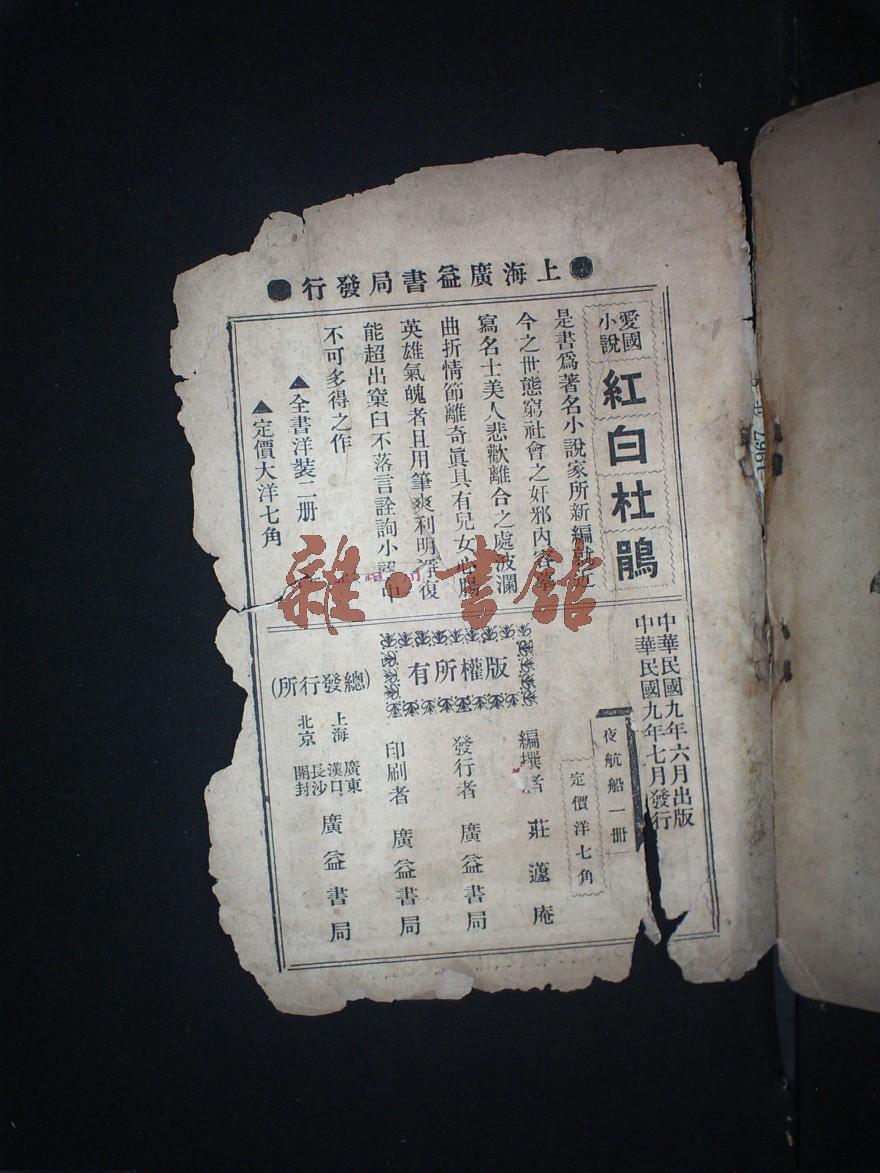 ●上海廣益書局發行●
愛國小說
紅白杜鵑
是書爲著名小說家所新編
今之世態窮社會之奸邪內容
寫名士美人悲歡離合之處波瀾
曲折情節離奇眞具有兒女心腸
英雄氣魄者且用筆爽利明淨復
能超出窠臼不落言詮詢小說中
不可多得之作
▲全書洋裝二册
▲定價大洋七角
中華民國九年六月出版
中華民國九年七月發行
夜航船一册
定價洋七角
版權所有
編撰者 莊蘧庵
發行者 廣益書局
印刷者 廣益書局
(總發行所)
上海 北京
廣東 漢口 長沙 開封
廣益書局
雜·書館